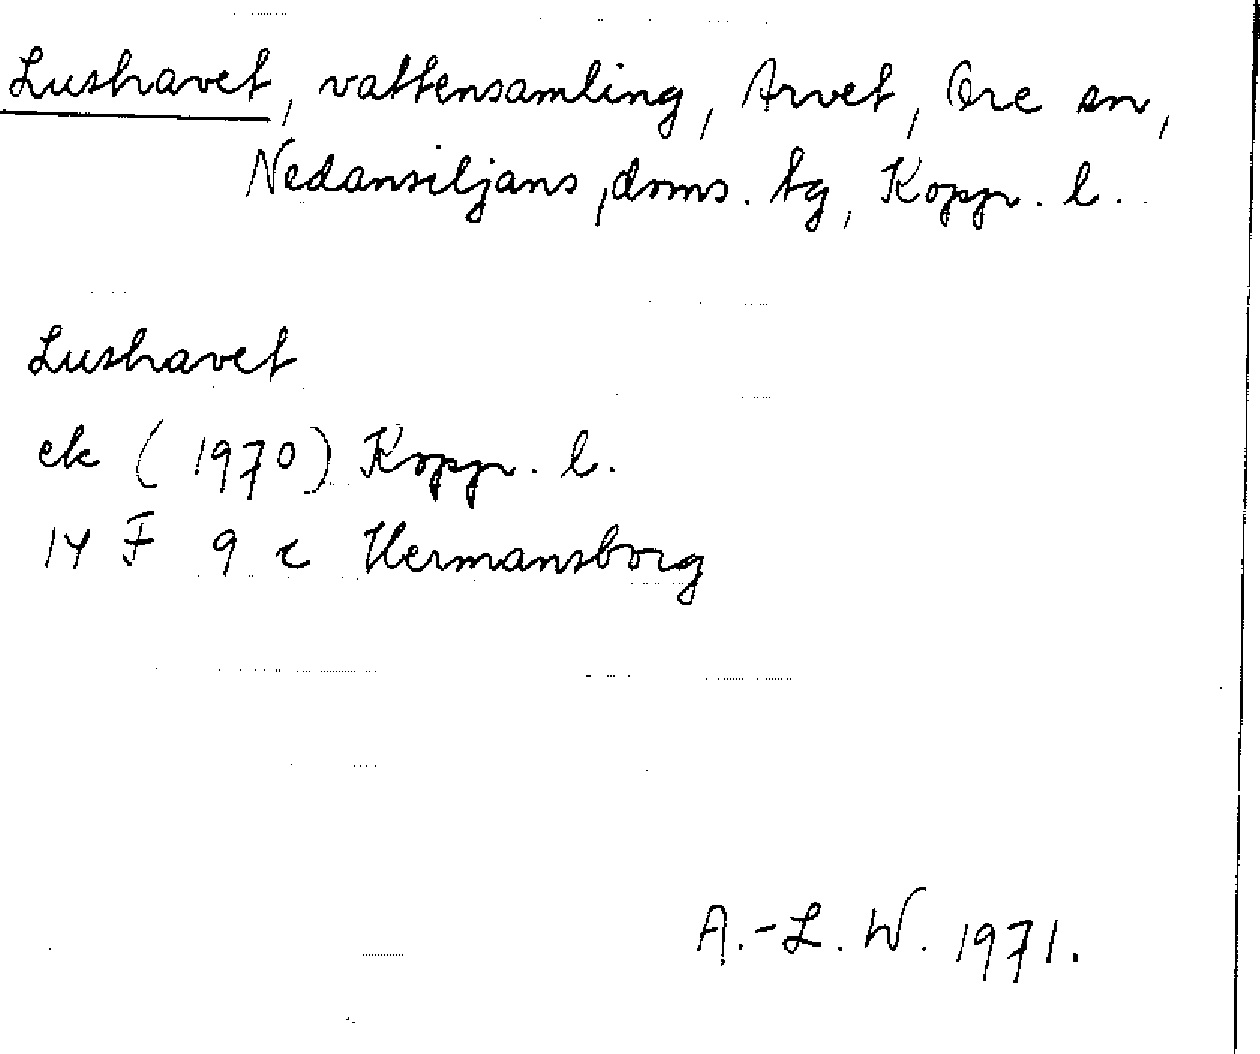 Lushavet, vattensamling, Arvet, Ore sn,
Nedansiljans doms. tg, Koppr. l.
Lushavet
ek (1970) Koppr. l.
14 F 9 c Hermansborg
A.-L. W. 1971.